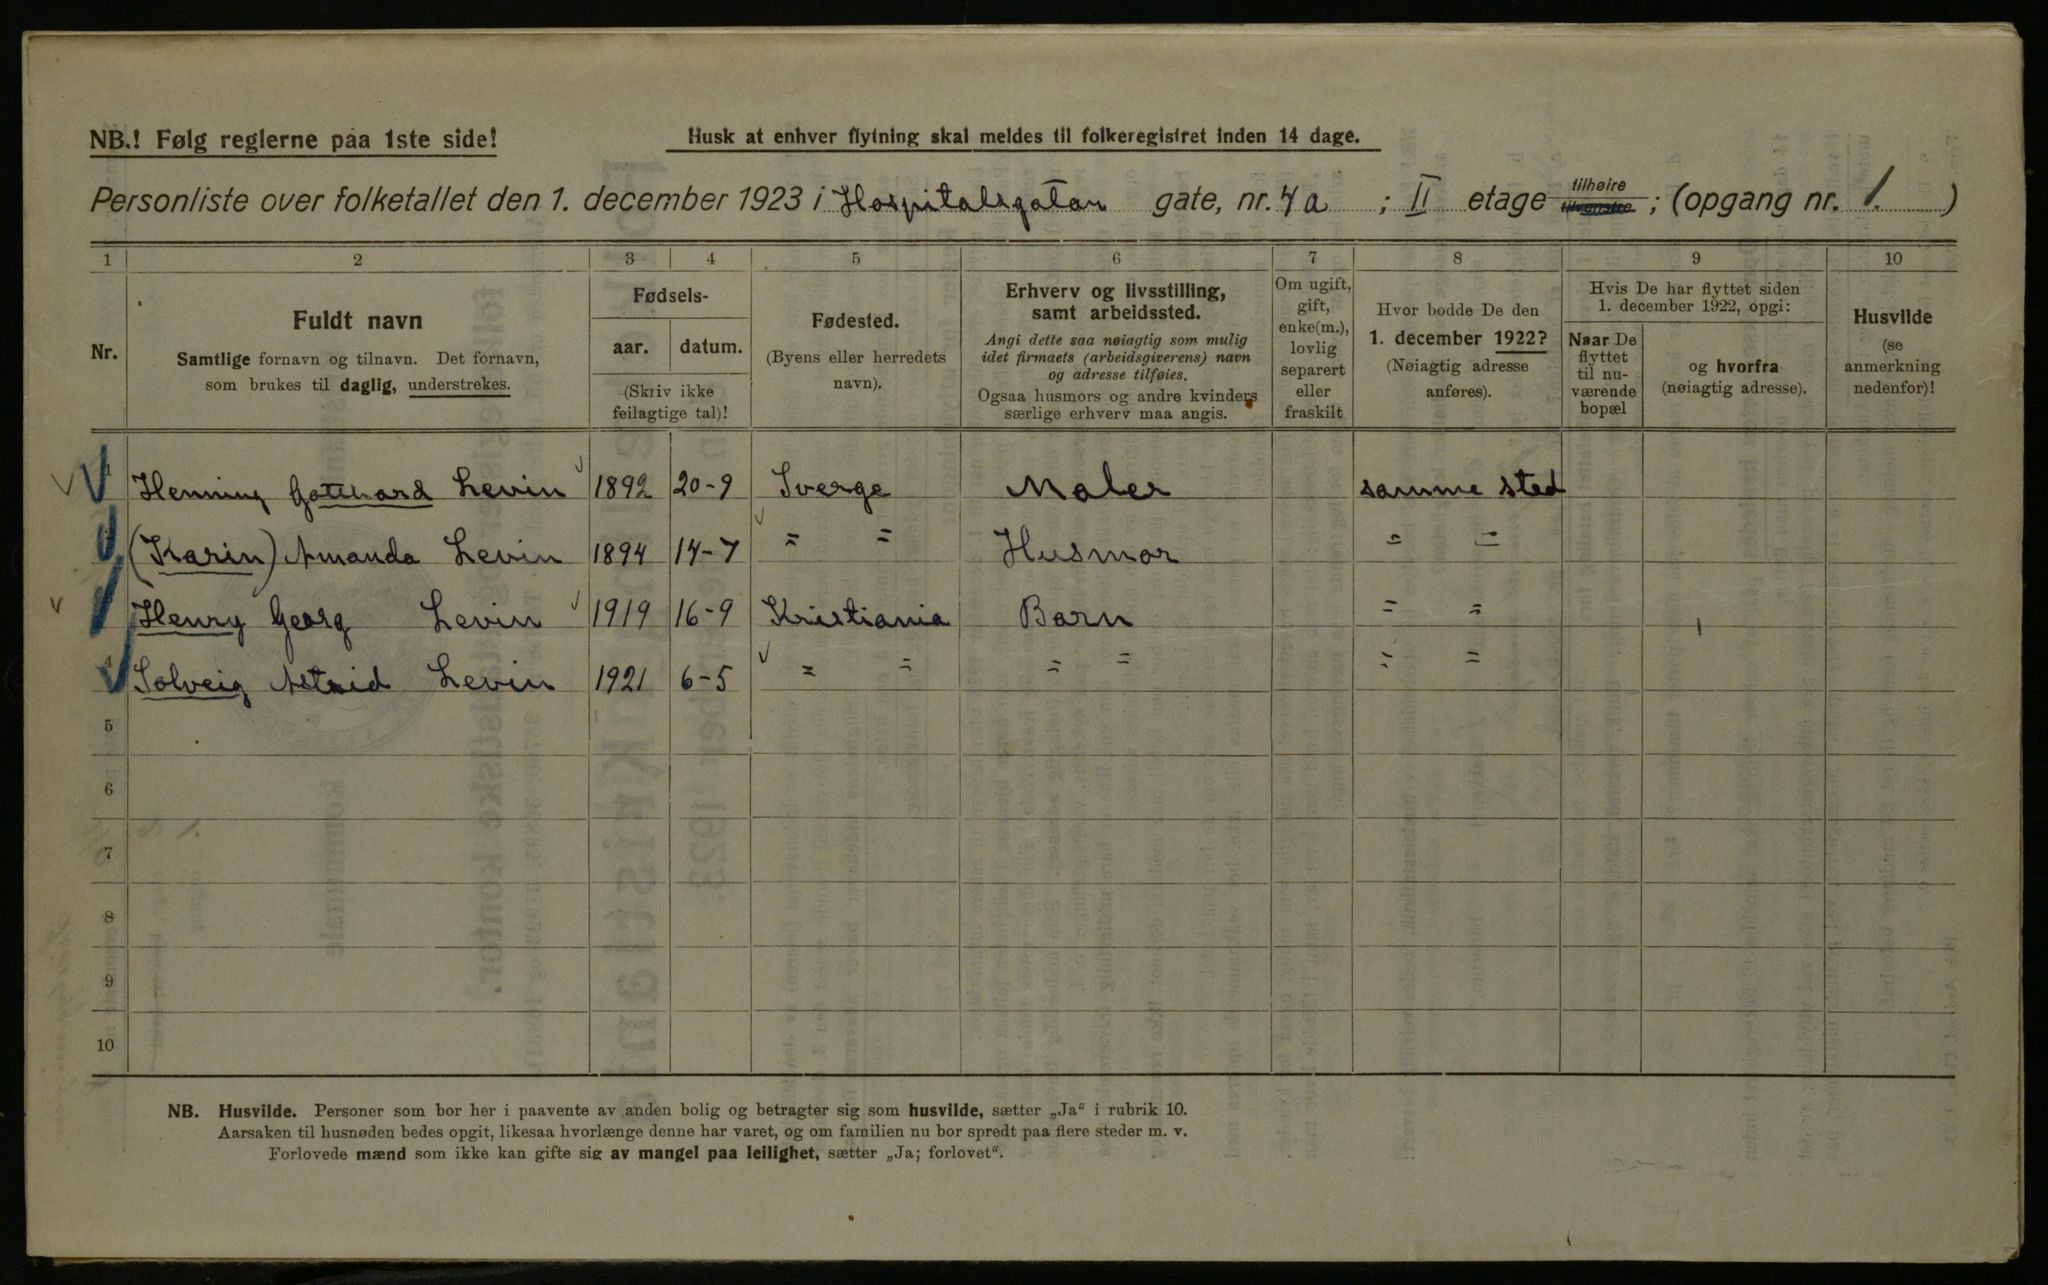 NB.! Følg reglerne paa 1ste side!
Husk at enhver flytning skal meldes til folkeregistret inden 14 dage.
Personliste over folketallet den 1. december 1923 i Hospitalsgatan gate, nr. 4a ; II etage tilhøire tilvenstre ; (opgang nr. 1. )
1 2 3 4 5 6 7 8 9 10
Nr.
Fuldt navn
Samtlige fornavn og tilnavn. Det fornavn,
som brukes til daglig, understrekes.
Fødsels-
aar. datum.
(Skriv ikke
feilagtige tal)!
Fødested.
(Byens eller herredets
navn).
Erhverv og livsstilling,
samt arbeidssted.
Angi dette saa nøiagtig som mulig
idet firmaets (arbeidsgiverens) navn
og adresse tilføies.
Ogsaa husmors og andre kvinders
særlige erhverv maa angis.
Om ugift,
gift,
enke(m.),
lovlig
separert
eller
fraskilt
Hvor bodde De den
1. december 1922?
(Nøiagtig adresse
anføres).
Hvis De har flyttet siden
1. december 1922, opgi:
Naar De
flyttet
til nu-
værende
bopæl
og hvorfra
(nøiagtig adresse).
Husvilde
(se
anmerkning
nedenfor)!
1 Henning Gotthard Levin 1892 20-9 Sverge Maler samme sted
(Karin) Amanda Levin 1894 14-7 = = Husmor = =
Henry Georg Levin 1919 16-9 Kristiania Barn = =
4 Solveig Astrid Levin 1921 6-5 = = = = = =
5
6
7
8
9
10
NB. Husvilde. Personer som bor her i paavente av anden bolig og betragter sig som husvilde, sætter „Ja“ i rubrik 10.
Aarsaken til husnøden bedes opgit, likesaa hvorlænge denne har varet, og om familien nu bor spredt paa flere steder m. v.
Forlovede mænd som ikke kan gifte sig av mangel paa leilighet, sætter „Ja; forlovet“.